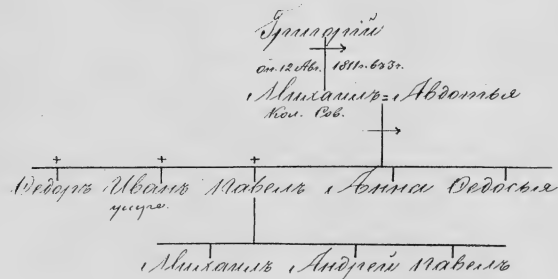 Григорій
ск. 12 Авг. 1811г. 63г.
Михаилъ = Авдотья
Кол. Сов.
Ѳедоръ Иванъ Павелъ Анна Ѳедосья
Михаилъ Андрей Павелъ